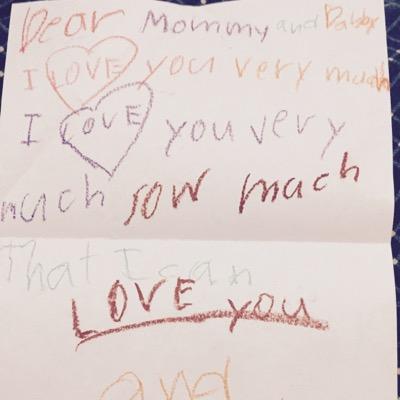 Dear Mommy and Dabby
I LOVE you very much
I LOVE you very
much sow much
That I can
LOVE you
and